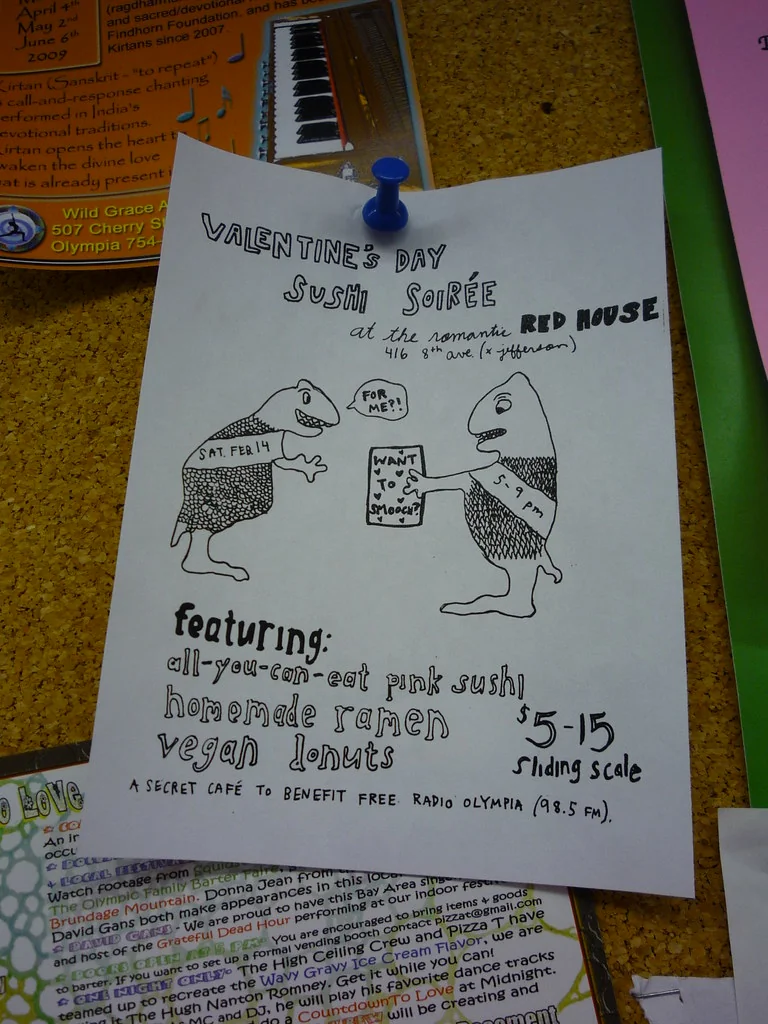 April 4th
May 2nd
June 6th
2009
and sacred/devotional
Findhorn Foundation, and has
Kirtans since 2007.
Kirtan (Sanskrit - "to repeat")
call-and-response chanting
performed in India's
devotional traditions.
Kirtan opens the heart to
awaken the divine love
that is already present
Wild Grace
507 Cherry
Olympia 754-
VALENTINE'S DAY
SUSHI SOIRÉE
at the romantic RED HOUSE
416 8th ave. (x jefferson)
FOR
ME?!
SAT. FEB 14
WANT
TO
SMOOCH?
5-9 pm
featuring:
all-you-can-eat pink sushi
homemade ramen
vegan donuts
$5-15
sliding scale
A SECRET CAFÉ TO BENEFIT FREE RADIO OLYMPIA (98.5 FM).
LOVE
An
LOCAL
Watch footage from
The Olympic Family Barter Faire,
Brundage Mountain. Donna Jean from
David Gans both make appearances in this
DAVID GANS - We are proud to have this Bay Area
and host of the Grateful Dead Hour performing at our indoor
You are encouraged to bring items & goods
to barter. If you want to set up a formal vending booth contact pizzat@gmail.com
ONE NIGHT ONLY- The High Ceiling Crew and Pizza T have
teamed up to recreate the Wavy Gravy Ice Cream Flavor, we are
it The Hugh Nanton Romney. Get it while you can!
MC and DJ, he will play his favorite dance tracks
do a CountdownTO Love at Midnight.
will be Creating and